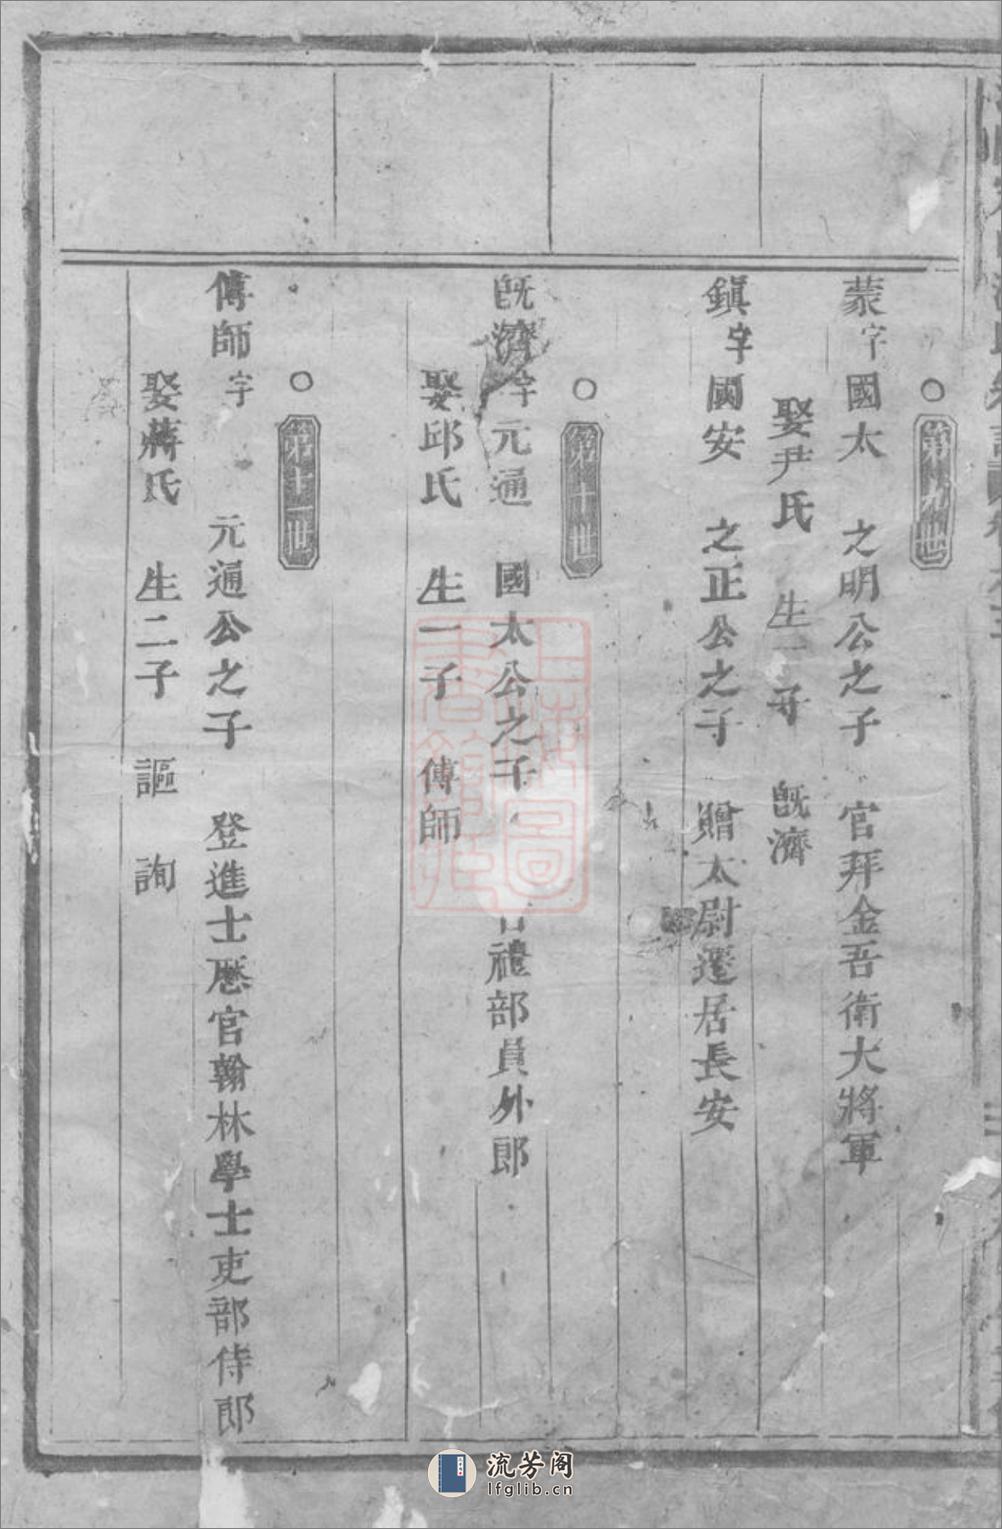 第九世
蒙字國太 之明公之子 官拜金吾衛大將軍
娶尹氏 生一子 既濟
鎮字國安 之正公之子 贈太尉遷居長安
第十世
既濟字元通 國太公之子 官禮部員外郎
娶邱氏 生一子 傅師
第十一世
傅師字 元通公之子 登進士歷官翰林學士吏部侍郎
娶蔣氏 生二子 謳 詢
上海圖書館藏
流芳阁
lfglib.cn